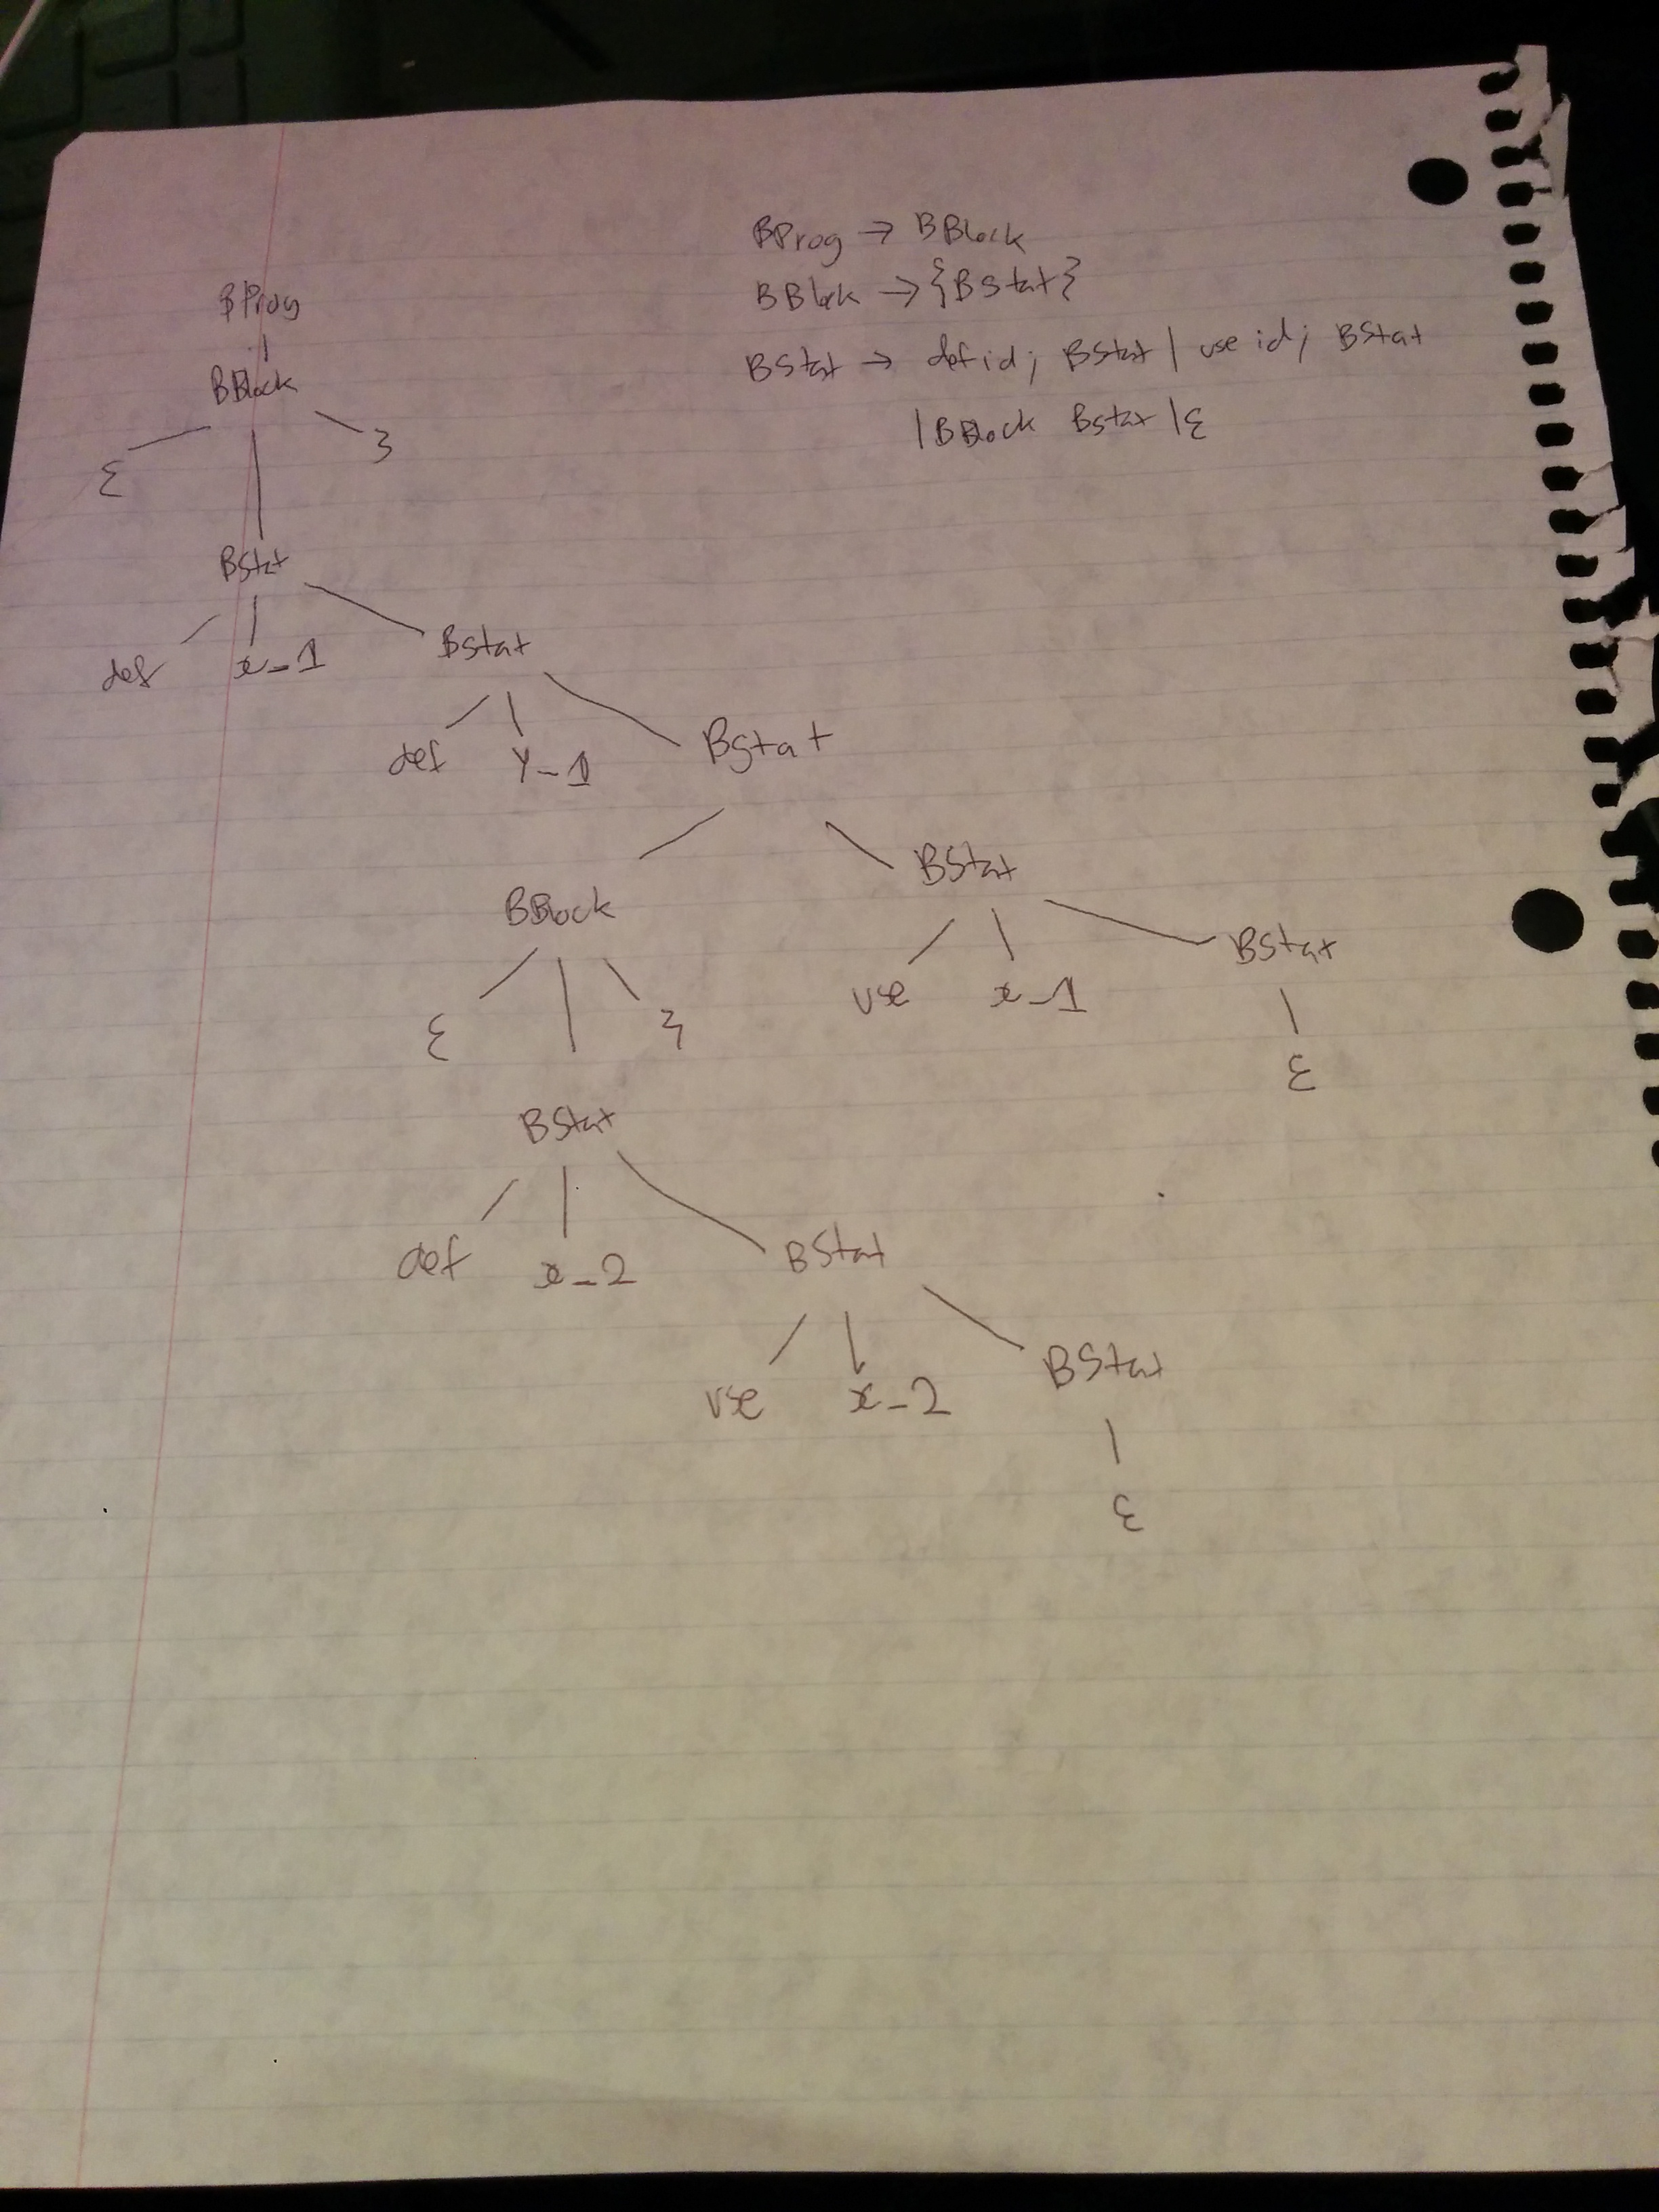 BProg → BBlock
BBlock → {BStat}
BStat → def id; BStat | use id; BStat
| BBlock BStat | ε
BProg
BBlock
{ }
BStat
def x_1 BStat
def y_1 BStat
BBlock BStat
{ } use x_1 BStat
ε
BStat
def x_2 BStat
use x_2 BStat
ε